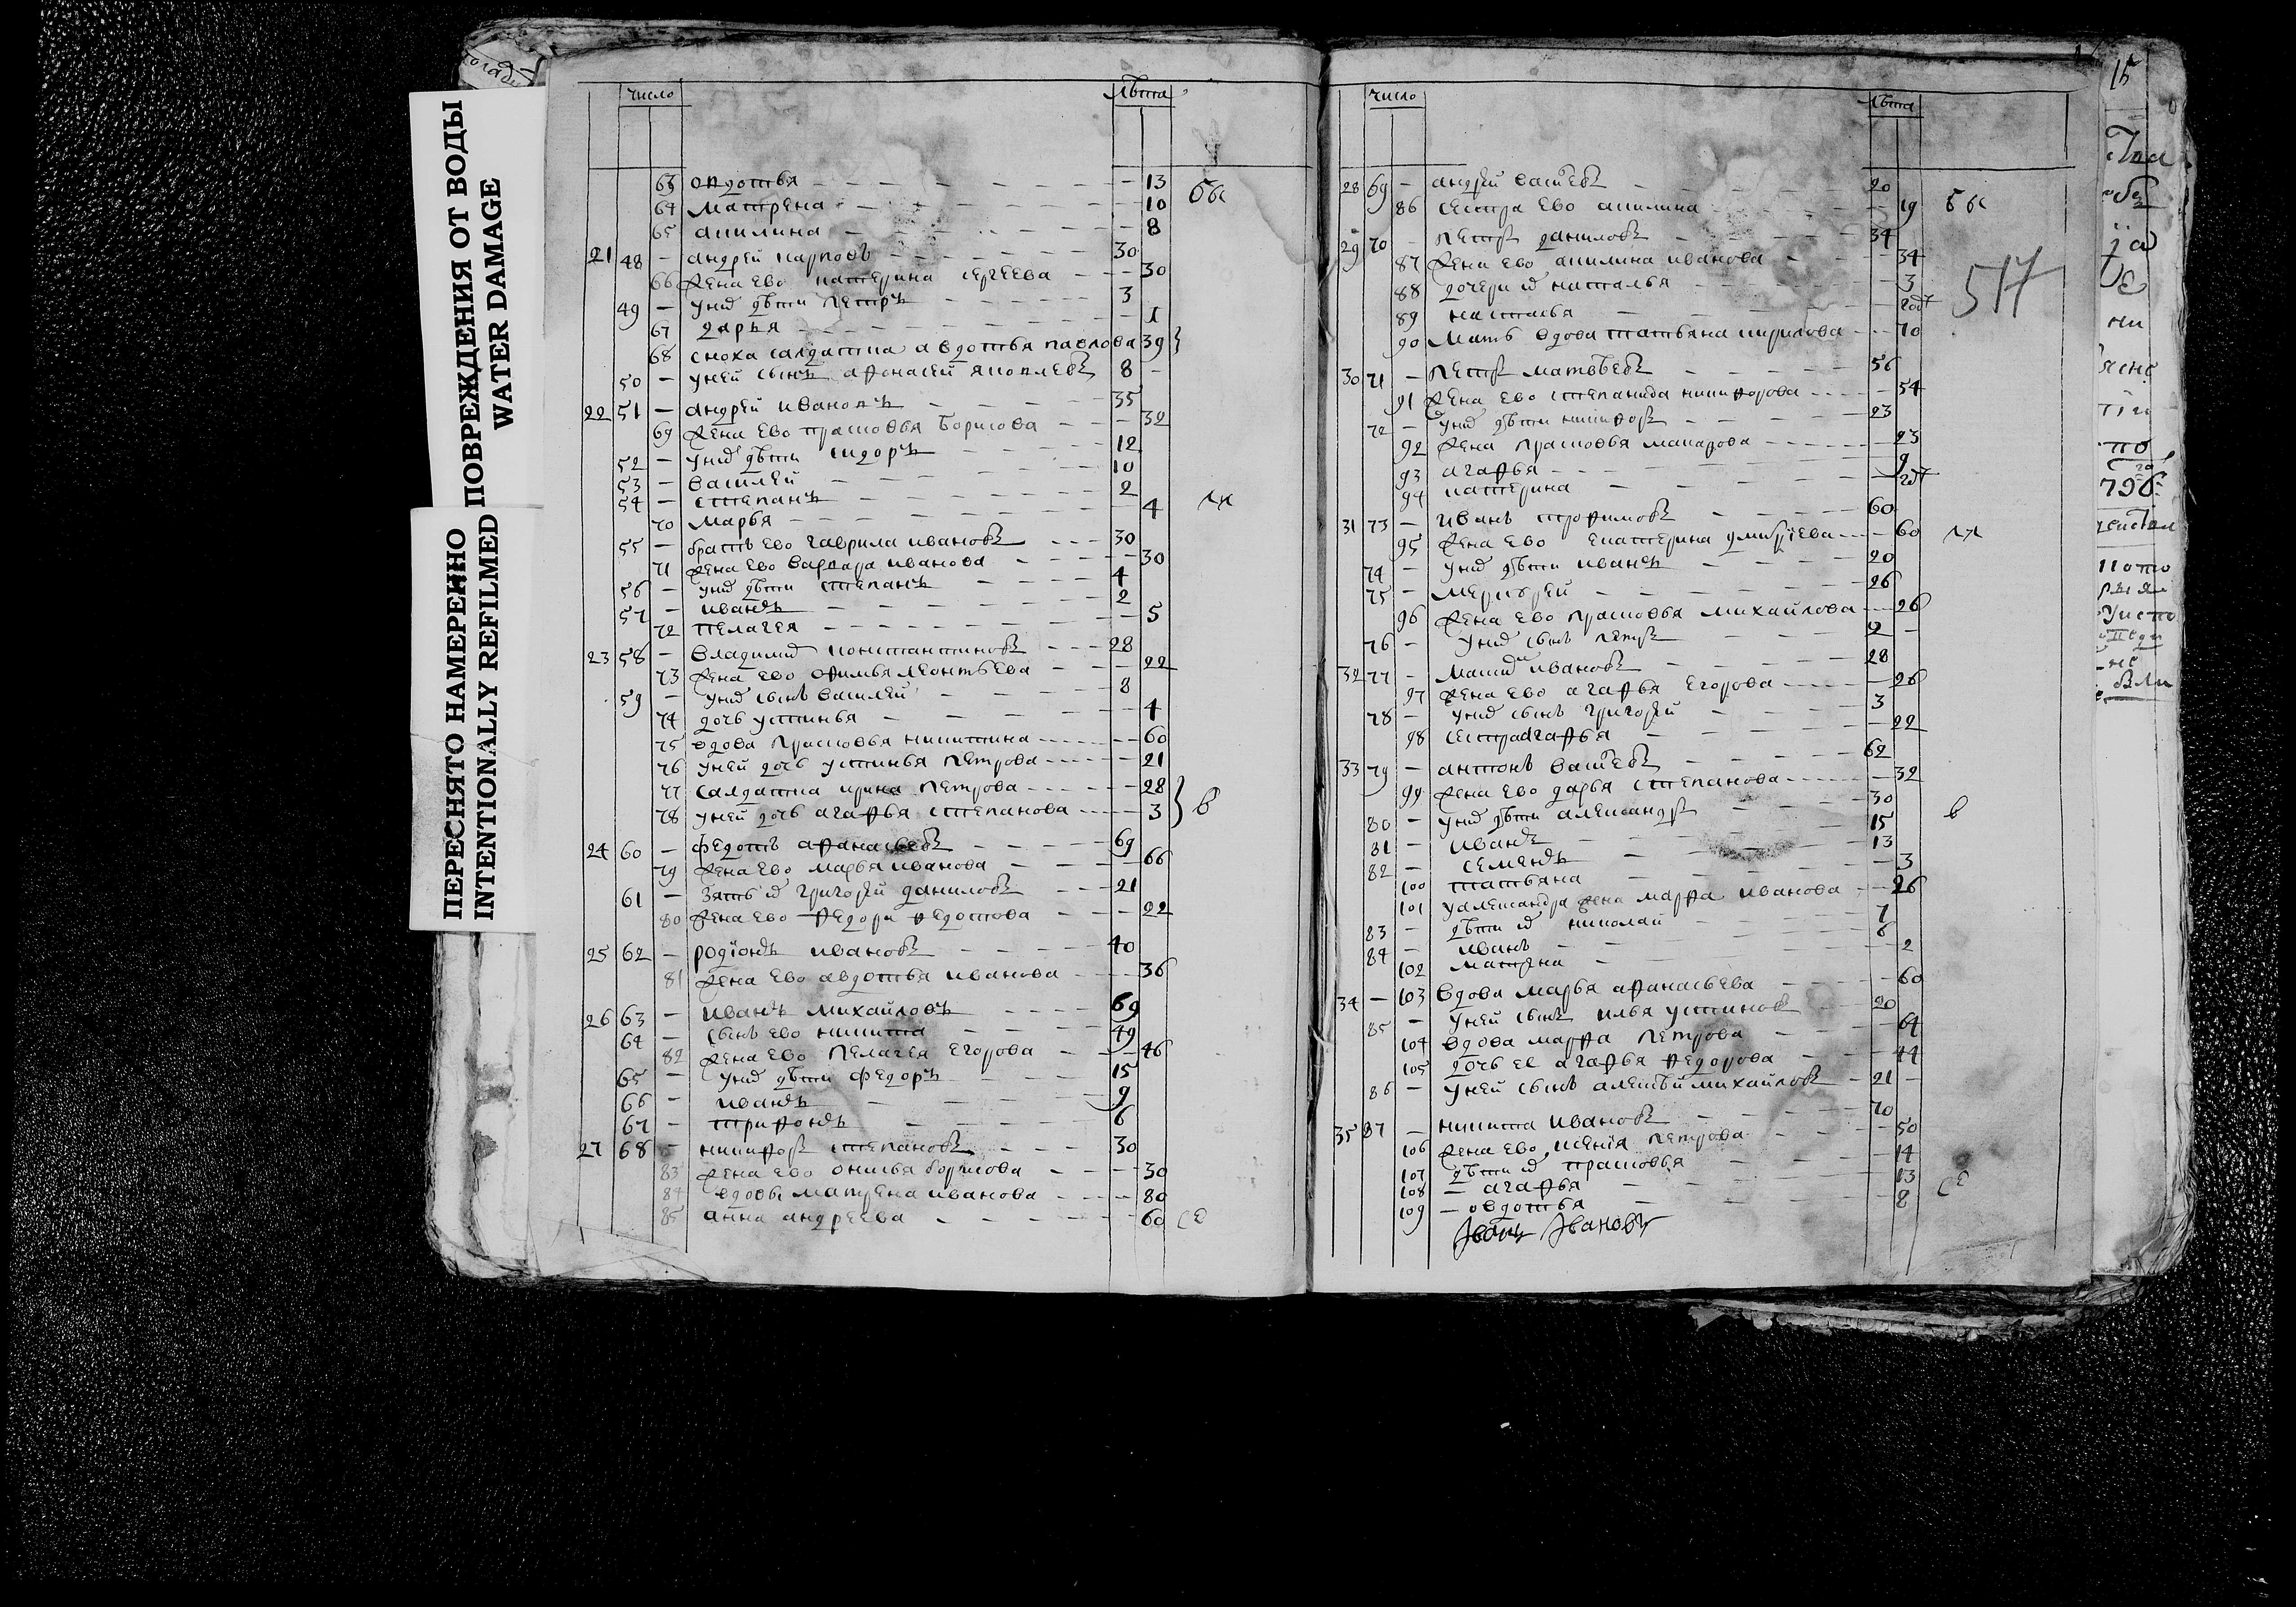 ПЕРЕСНЯТО НАМЕРЕННО ПОВРЕЖДЕНИЯ ОТ ВОДЫ
INTENTIONALLY REFILMED WATER DAMAGE
число лѣта
63 овдотья 13
64 матрена 10
65 акилина 8
21 48 андрей карповъ 30
66 жена ево катерина сергеева 30
49 у них дѣти петръ 3
67 дарья 1
68 сноха салдатка авдотья павлова 39
50 у ней сынъ афонасей яковлевъ 8
22 51 андрей ивановъ 35
69 жена ево прасковья борисова 32
52 у них дѣти сидоръ 12
53 василей 10
54 степанъ 2
70 марья 4
55 братъ ево гаврила ивановъ 30
71 жена ево варвара иванова 30
56 у них дѣти степанъ 4
57 иванъ 2
72 пелагея 5
23 58 владимир константиновъ 28
73 жена ево офимья леонтьева 22
59 у них сынъ василей 8
74 дочь устинья 4
75 вдова прасковья никитина 60
76 у ней дочь устинья петрова 21
77 салдатка ирина петрова 28
78 у ней дочь агафья степанова 3 в
24 60 федотъ афанасьевъ 69
79 жена ево марья иванова 66
61 зять их григорей даниловъ 21
80 жена ево федора федотова 22
25 62 родіонъ ивановъ 40
81 жена ево авдотья иванова 36
26 63 иванъ михайловъ 69
64 сынъ ево никита 49
82 жена ево пелагея егорова 46
65 у них дѣти федоръ 15
66 иванъ 9
67 трифонъ 6
27 68 никифоръ степановъ 30
83 жена ево онисья борисова 30
84 вдовы матрена иванова 80
85 анна андреева 60 се
число лѣта
28 69 андрей васильевъ 20
86 сестра ево акилина 19
29 70 петръ даниловъ 34
87 жена ево акилина иванова 34
88 дочери их наталья 3
89 наталья год
90 мать вдова татьяна кирилова 70
517
30 71 петръ матвѣевъ 56
91 жена ево степанида никифорова 54
72 у них дѣти никифоръ 23
92 жена прасковья макарова 23
93 агафья 9
94 катерина год
31 73 иванъ трофимовъ 60
95 жена ево екатерина дмитріева 60
74 у них дѣти иванъ 20
75 меркурей 26
96 жена ево прасковья михайлова 26
76 у них сынъ петръ 2
32 77 ивановъ 28
97 жена ево агафья егорова 26
78 у них сынъ григорей 3
98 сестра агафья 22
33 79 антонъ васильевъ 62
99 жена ево дарья степанова 32
80 у них дѣти александръ 30 в
81 иванъ 15
82 семенъ 13
100 татьяна 3
101 у александра жена марфа иванова 26
83 дѣти их николай 7
84 иванъ 6
102 матрена 2
34 103 вдова марья афанасьева 60
85 у ней сынъ илья устиновъ 20
104 вдова марфа петрова 64
105 дочь ее агафья федорова 44
86 у ней сынъ алексѣй михайловъ 21
35 87 никита ивановъ 70
106 жена ево ксенія петрова 50
107 дѣти их прасковья 14
108 агафья 13 се
109 овдотья 8
Іванъ Івановъ
15